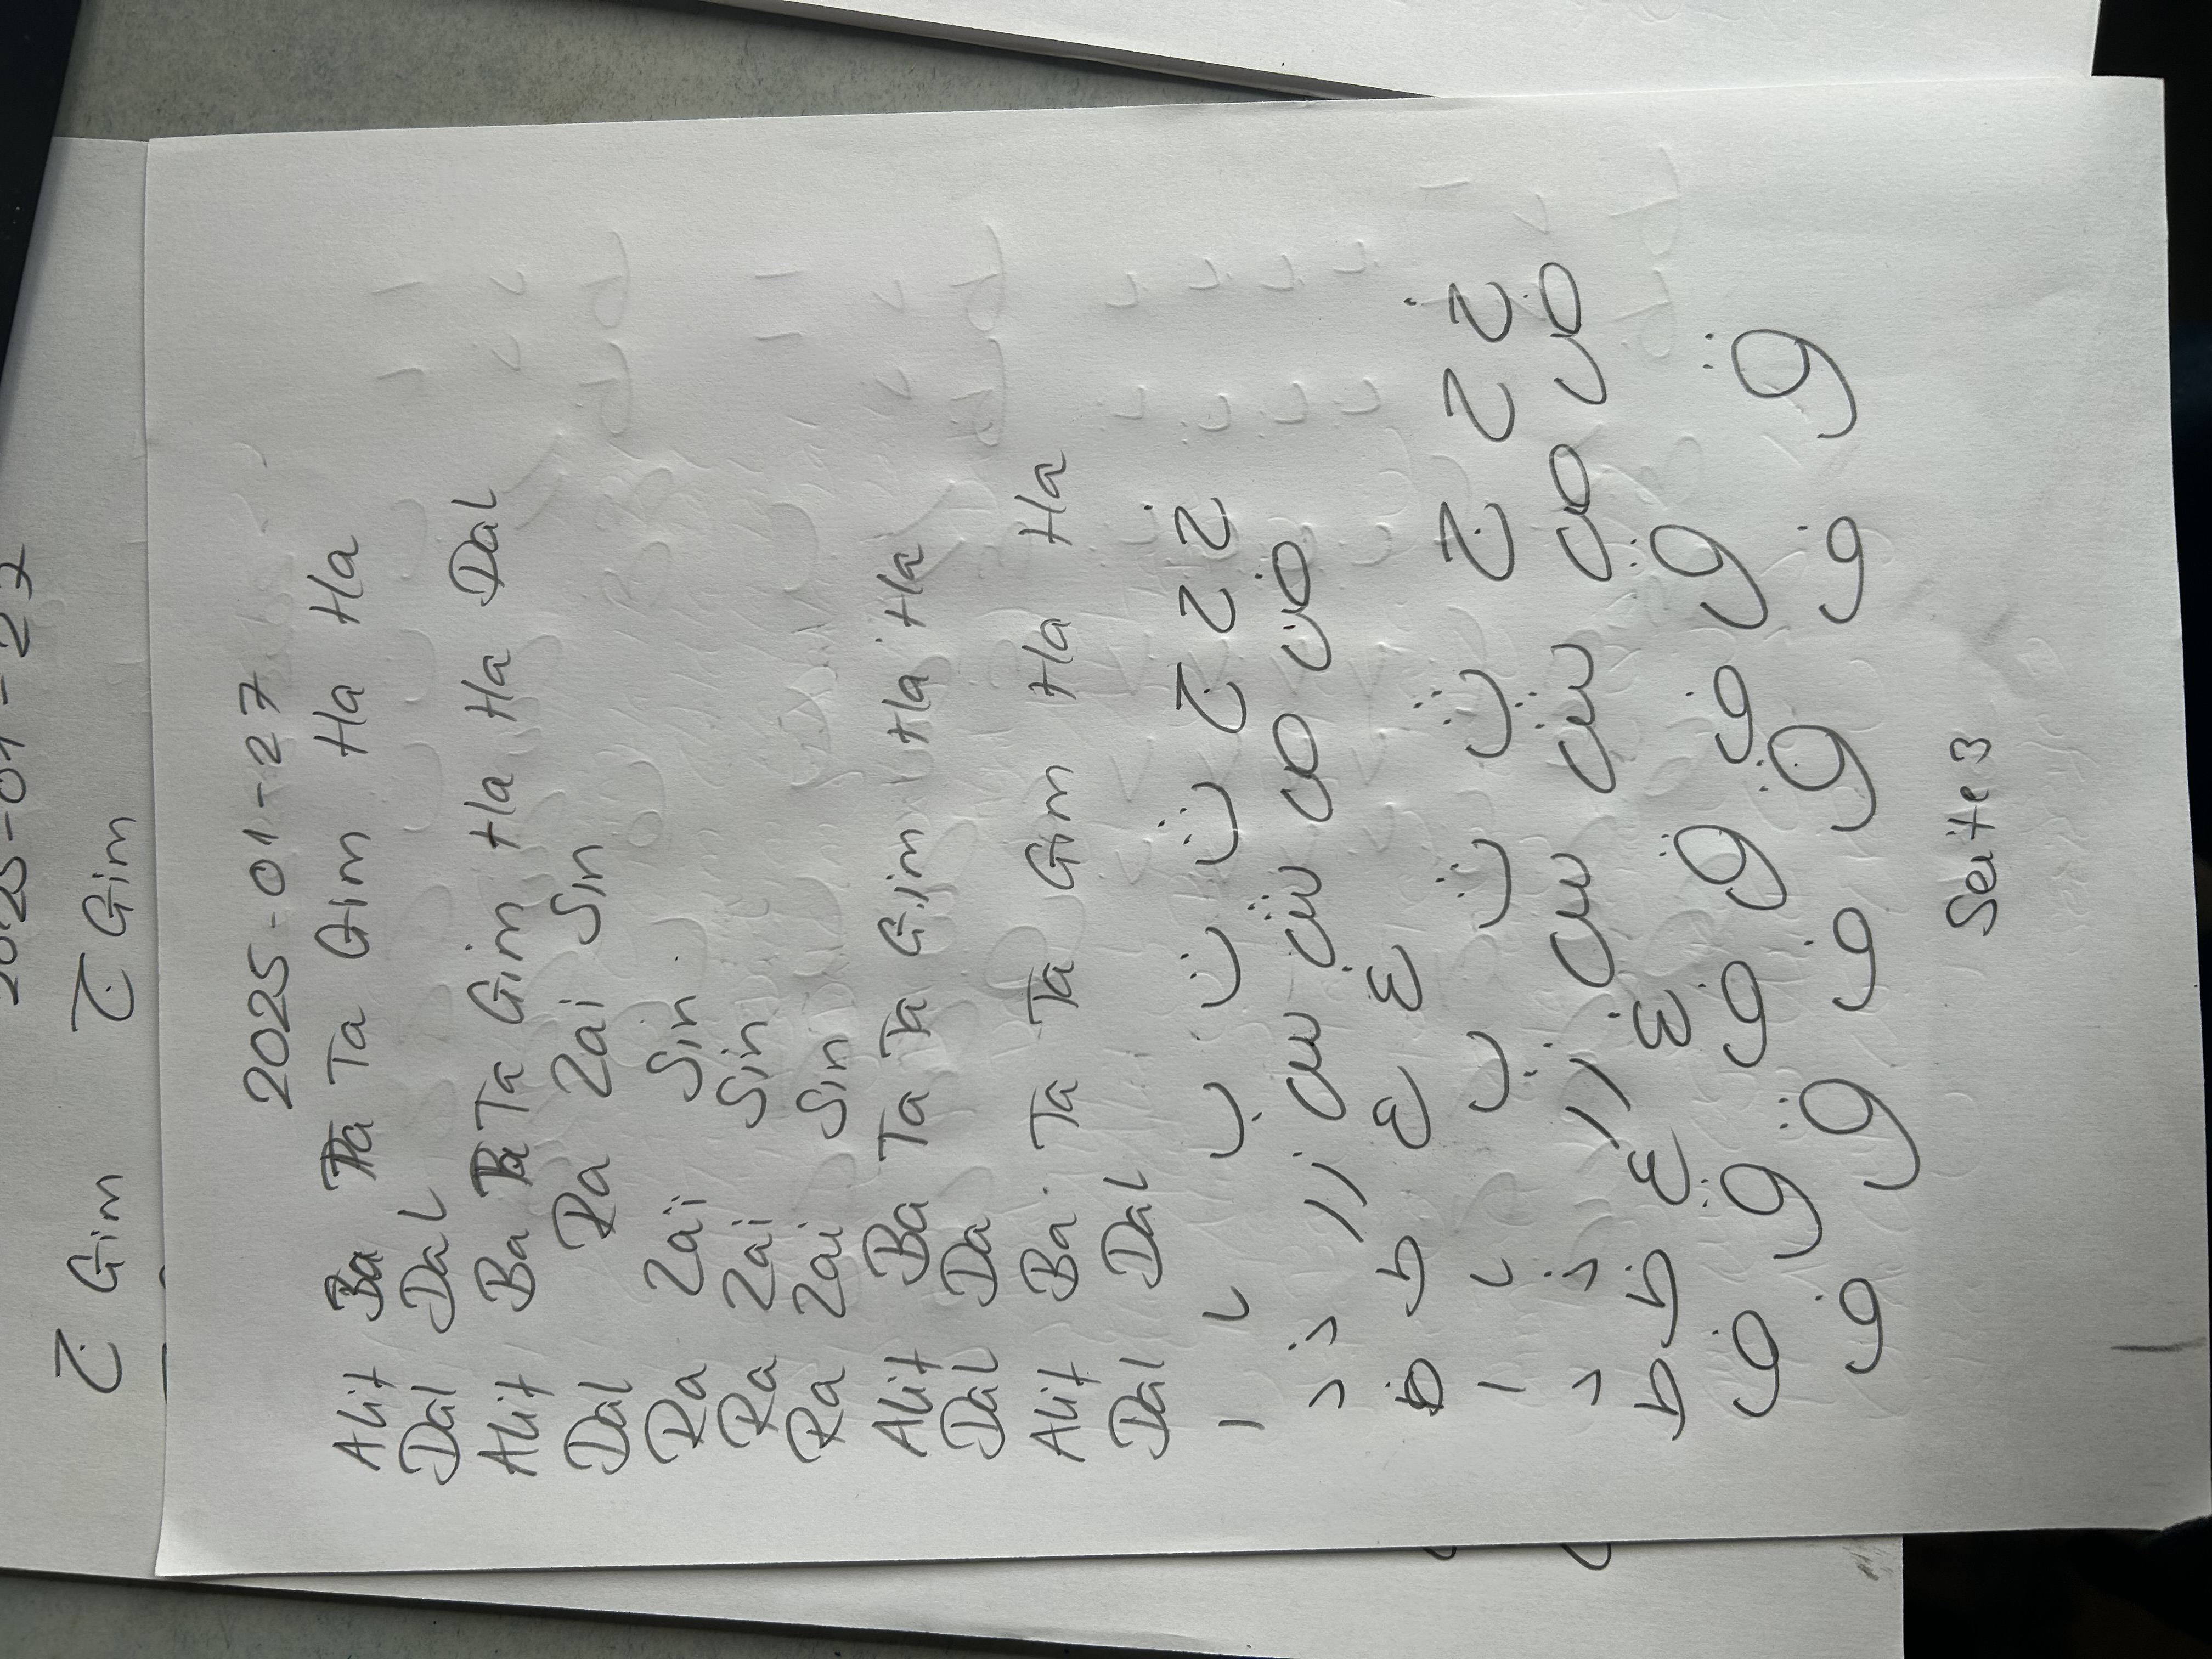 2025-01-27
ج Gim ج Gim
2025-01-27
Alif Ba Ta Ta Gim Ha Ha
Dal Dal
Alif Ba Ta Ta Gim Ha Ha Dal
Dal Ra Zai Sin
Ra Zai Sin
Ra Zai Sin
Ra Zai Sin
Alif Ba Ta Ta Gim Ha Ha
Dal Da
Alif Ba Ta Ta Gim Ha Ha
Dal Dal
ا ب ت ث ج ح خ
د ذ ر ز س ش ص ض
ط ظ ع غ
ا ب ت ث ج ح خ
د ذ ر ز س ش ص ض
ط ظ ع غ
ف ق ف ق ف ق
ف ق ف ق ف ق
Seite 3